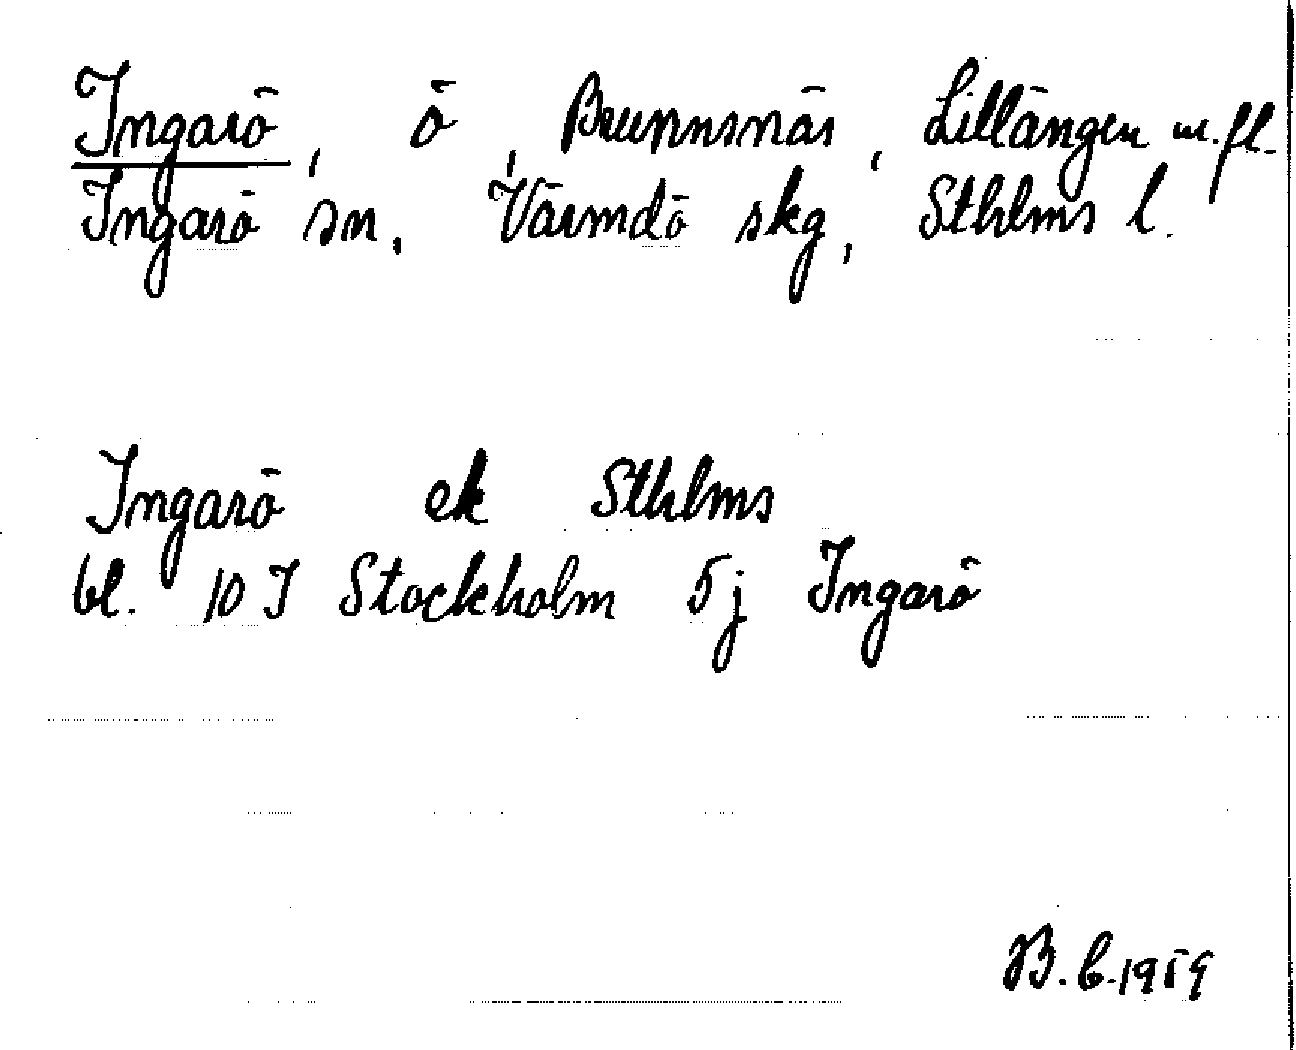 Ingarö, ö, Brunnsnäs, Lillängen m.fl.
Ingarö sn. Värmdö skg, Sthlms l.
Ingarö ek Sthlms
bl. 10 I Stockholm 5j Ingarö
B.C.1959